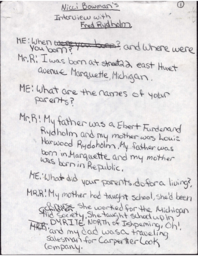 Nicci Bowman's
Interview with
Fred Rydholm
ME: When and where were
you born?
Mr.R: I was born at 22 east Hewt
avenue Marquette Mchigan.
ME: What are the names of your
parents?
Mr.R: My father was a Ebert Furdenand
Rydholm and my mother was Louis
Norwood Rydoholm. My father was
born in Marquette and my mother
was born in Republic.
ME: What did your parents do for a living?
MR.R: My mother had tought school, she'd been
She worked for the Michigan
Aid Society. She tought school up in
DIXIE, NORTH of Ispeming, Oh!
and my dad was a travelling
salesman for Carpenter Cook
company.